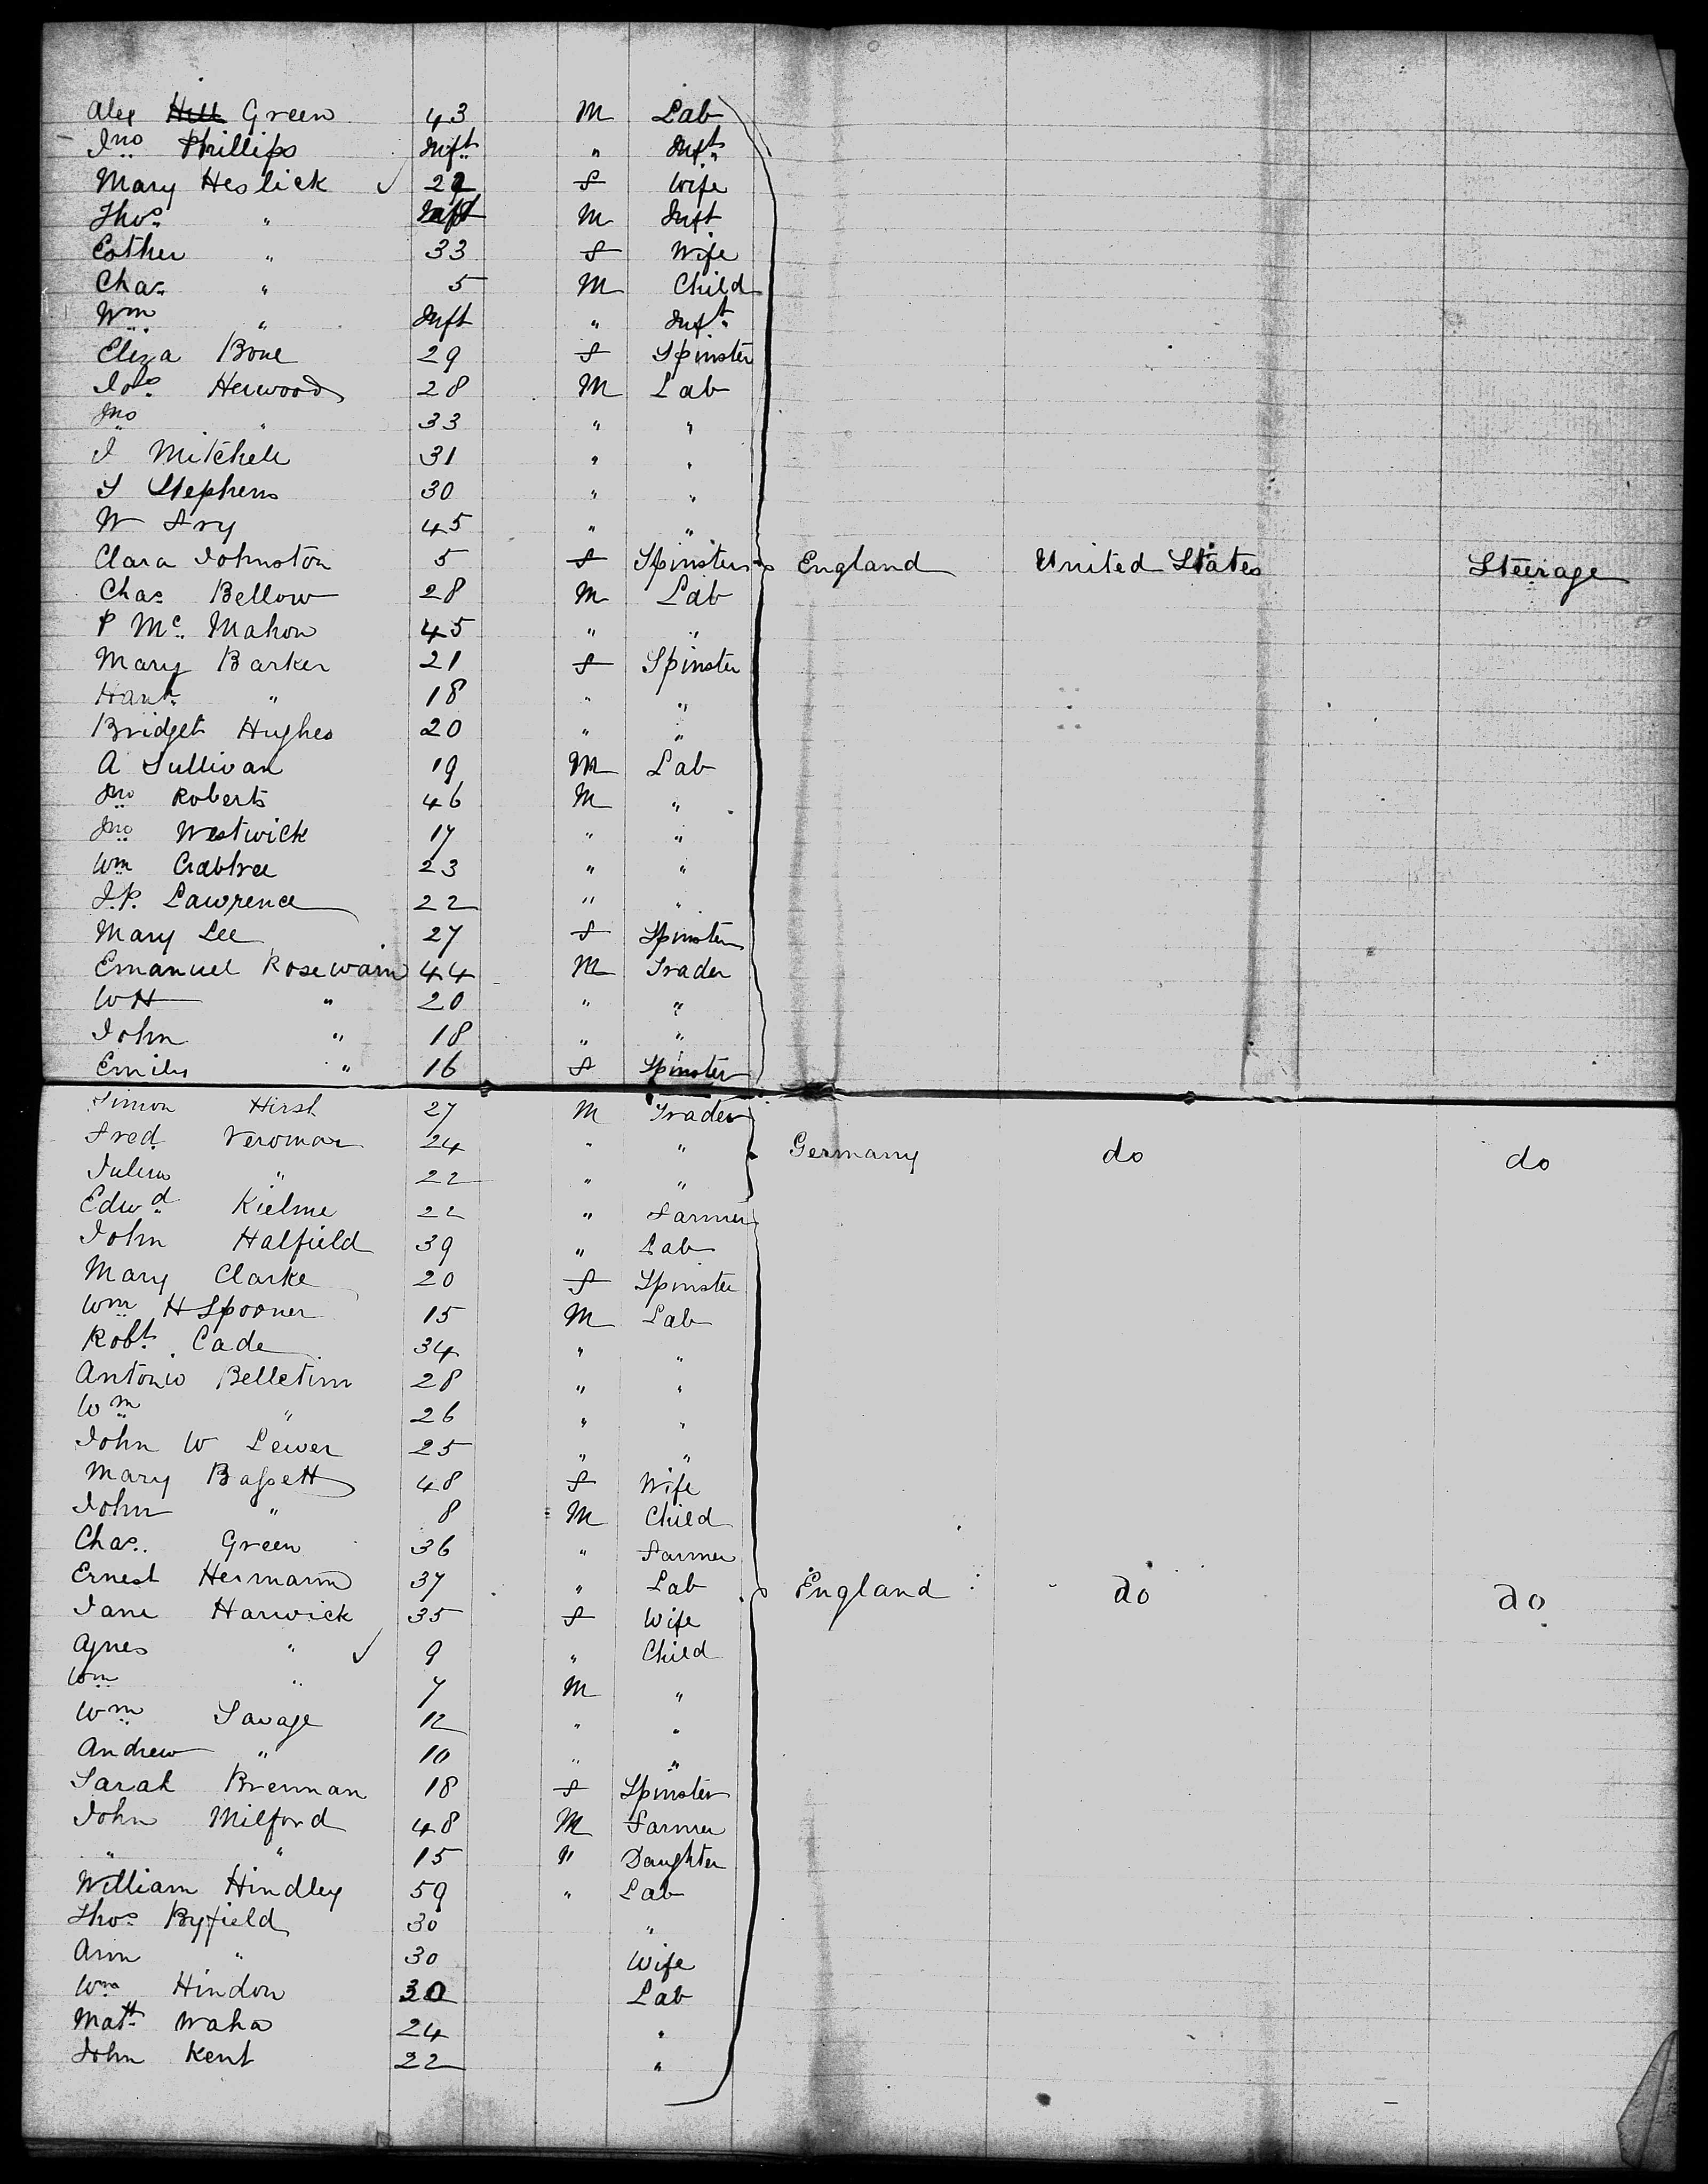 Alex Hill Green 43 M Lab
Jno Phillips Inft " Inft
Mary Heslick ✓ 22 f Wife
Thos " Inft M Inft
Esther " 33 f Wife
Chas " 5 M Child
Wm " Inft " Inft
Eliza Bone 29 f Spinster
Jos Herwood 28 M Lab
Jno " 33 " "
J Mitchell 31 " "
S Stephens 30 " "
W Fry 45 " "
Clara Johnston 5 f Spinster England United States Steerage
Chas Bellow 28 M Lab
P Mc Mahon 45 " "
Mary Barker 21 f Spinster
Hanh " 18 " "
Bridget Hughes 20 " "
A Sullivan 19 M Lab
Jno Roberts 46 M "
Jno Westwick 17 " "
Wm Crabtree 23 " "
J.P. Lawrence 22 " "
Mary Lee 27 f Spinster
Emanuel Rosewarn 44 M Trader
WH " 20 " "
John " 18 " "
Emily " 16 f Spinster
Simon Hirsh 27 M Trader
Fred Veromar 24 " " Germany do do
Julius " 22 " "
Edwd Kielme 22 " Farmer
John Halfield 39 " Lab
Mary Clarke 20 f Spinster
Wm H Spooner 15 M Lab
Robt Cade 34 " "
Antonio Belletini 28 " "
Wm " 26 " "
John W Lewer 25 " "
Mary Bassett 48 f Wife
John " 8 M Child
Chas. Green 36 " Farmer
Ernest Hermann 37 " Lab England do do
Jane Harwick 35 f Wife
Agnes " ✓ 9 " Child
Wm " 7 M "
Wm Savage 12 " "
Andrew " 10 " "
Sarah Brennan 18 f Spinster
John Milford 48 M Farmer
" " 15 " Daughter
William Hindley 59 " Lab
Thos Byfield 30 "
Ann " 30 Wife
Wm Hindon 30 Lab
Matt Waha 24 "
John Kent 22 "